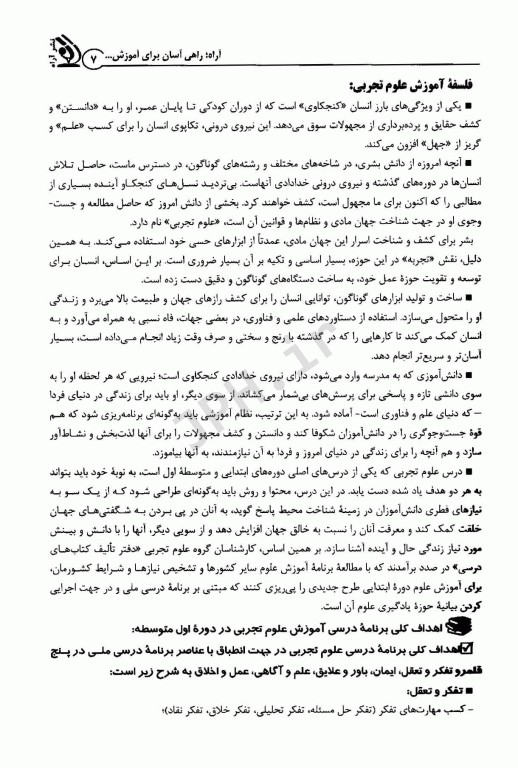 نشر آراه
آراه؛ راهی آسان برای آموزش... ۷
فلسفۀ آموزش علوم تجربی:
■ یکی از ویژگی‌های بارز انسان «کنجکاوی» است که از دوران کودکی تا پایان عمر، او را به «دانستن» و
کشف حقایق و پرده‌برداری از مجهولات سوق می‌دهد. این نیروی درونی، تکاپوی انسان را برای کسب «علم» و
گریز از «جهل» افزون می‌کند.
■ آنچه امروزه از دانش بشری، در شاخه‌های مختلف و رشته‌های گوناگون، در دسترس ماست، حاصل تلاش
انسان‌ها در دوره‌های گذشته و نیروی درونی خدادادی آنهاست. بی‌تردید نسل‌های کنجکاو آینده بسیاری از
مطالبی را که اکنون برای ما مجهول است، کشف خواهند کرد. بخشی از دانش امروز که حاصل مطالعه و جست-
وجوی او در جهت شناخت جهان مادی و نظام‌ها و قوانین آن است، «علوم تجربی» نام دارد.
بشر برای کشف و شناخت اسرار این جهان مادی، عمدتاً از ابزارهای حسی خود استفاده می‌کند. به همین
دلیل، نقش «تجربه» در این حوزه، بسیار اساسی و تکیه بر آن بسیار ضروری است. بر این اساس، انسان برای
توسعه و تقویت حوزۀ عمل خود، به ساخت دستگاه‌های گوناگون و دقیق دست زده است.
■ ساخت و تولید ابزارهای گوناگون، توانایی انسان را برای کشف رازهای جهان و طبیعت بالا می‌برد و زندگی
او را متحول می‌سازد. استفاده از دستاوردهای علمی و فناوری، در بعضی جهات، فاه نسبی به همراه می‌آورد و به
انسان کمک می‌کند تا کارهایی را که در گذشته با رنج و سختی و صرف وقت زیاد انجام می‌داده است، بسیار
آسان‌تر و سریع‌تر انجام دهد.
■ دانش‌آموزی که به مدرسه وارد می‌شود، دارای نیروی خدادادی کنجکاوی است؛ نیرویی که هر لحظه او را به
سوی دانشی تازه و پاسخی برای پرسش‌های بی‌شمار می‌کشاند. از سوی دیگر، او باید برای زندگی در دنیای فردا
– که دنیای علم و فناوری است- آماده شود. به این ترتیب، نظام آموزشی باید به‌گونه‌ای برنامه‌ریزی شود که هم
قوۀ جست‌وجوگری را در دانش‌آموزان شکوفا کند و دانستن و کشف مجهولات را برای آنها لذت‌بخش و نشاط‌آور
سازد و هم آنچه را برای زندگی در دنیای امروز و فردا به آن نیازمندند، به آنها بیاموزد.
■ درس علوم تجربی که یکی از درس‌های اصلی دوره‌های ابتدایی و متوسطۀ اول است، به نوبۀ خود باید بتواند
به هر دو هدف یاد شده دست یابد. در این درس، محتوا و روش باید به‌گونه‌ای طراحی شود که از یک سو به
نیازهای فطری دانش‌آموزان در زمینۀ شناخت محیط پاسخ گوید، به آنان در پی بردن به شگفتی‌های جهان
خلقت کمک کند و معرفت آنان را نسبت به خالق جهان افزایش دهد و از سویی دیگر، آنها را با دانش و بینش
مورد نیاز زندگی حال و آینده آشنا سازد. بر همین اساس، کارشناسان گروه علوم تجربی «دفتر تألیف کتاب‌های
درسی» در صدد برآمدند که با مطالعۀ برنامۀ آموزش علوم سایر کشورها و تشخیص نیازها و شرایط کشورمان،
برای آموزش علوم دورۀ ابتدایی طرح جدیدی را پی‌ریزی کنند که مبتنی بر برنامۀ درسی ملی و در جهت اجرایی
کردن بیانیۀ حوزۀ یادگیری علوم آن است.
اهداف کلی برنامۀ درسی آموزش علوم تجربی در دورۀ اول متوسطه:
اهداف کلی برنامۀ درسی علوم تجربی در جهت انطباق با عناصر برنامۀ درسی ملی در پنج
قلمرو تفکر و تعقل، ایمان، باور و علایق، علم و آگاهی، عمل و اخلاق به شرح زیر است:
■ تفکر و تعقل:
- کسب مهارت‌های تفکر (تفکر حل مسئله، تفکر تحلیلی، تفکر خلاق، تفکر نقاد)؛